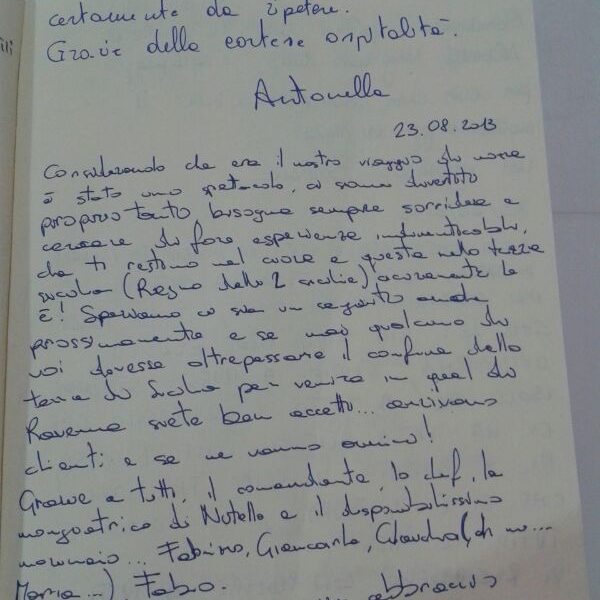 certamente da ripetere.
Grazie della cortese ospitalità.
Antonella
23.08.2013
Considerando che era il nostro viaggio di nozze
è stato uno spettacolo, ci siamo divertiti
proprio tanto, bisogna sempre sorridere e
cercare di fare esperienze indimenticabili,
che ti restino nel cuore e questa nella terra
sicula (Regno delle 2 sicilie) sicuramente lo
è! Speriamo ci sia un seguito anche
prossimamente e se mai qualcuno di
voi dovesse oltrepassare il confine della
terra di Sicilia per venire in quel di
Ravenna siete ben accetto... arrivano
clienti e se ne vanno amici!
Grazie a tutti, il comandante, lo chef, la
mangiatrice di Nutella e il disponibilissimo
marinaio... Fabrizio, Giancarlo, Claudia (, ah no...
Maria...) Fabio.
abbraccio